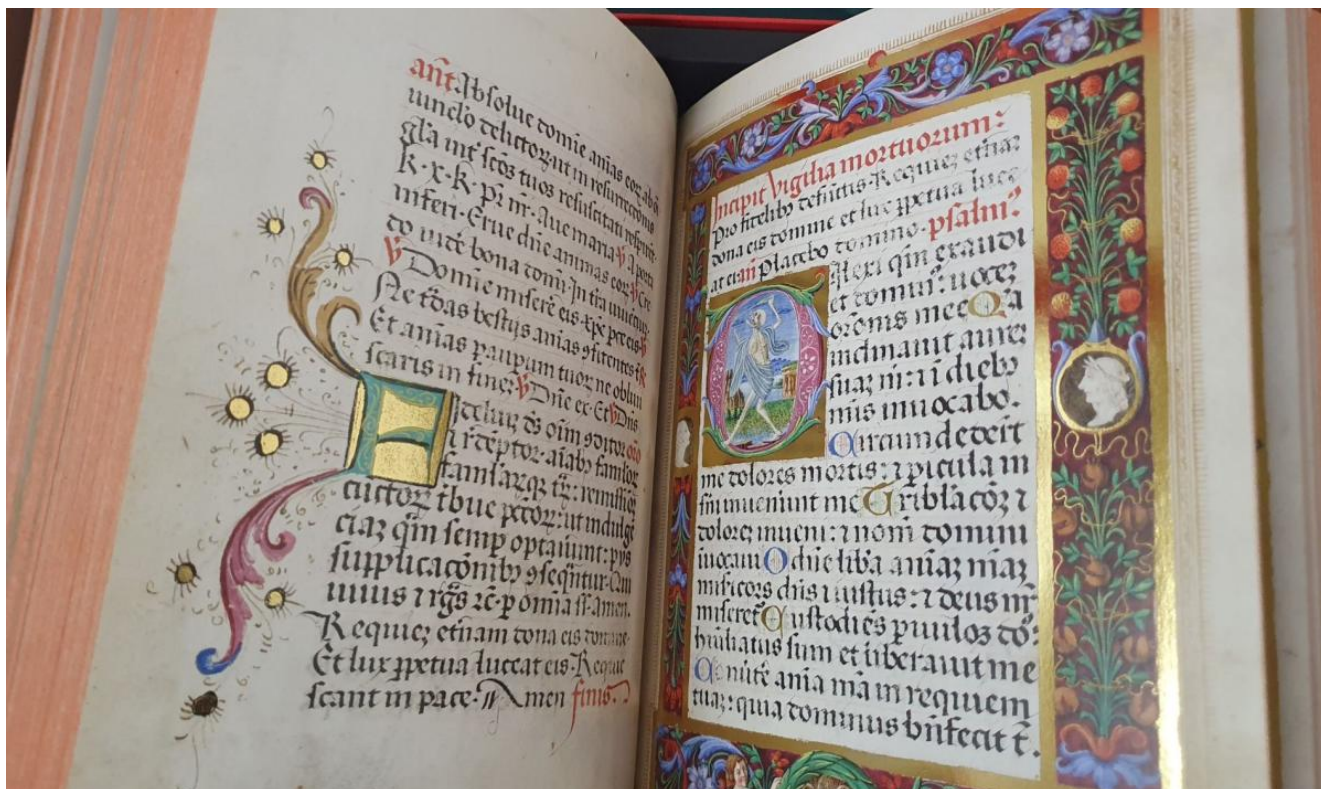 ant Absolue domie aīas eoꝝ ab oī
uinclo delictoꝝ ut in resurrectōnis
gl̄a int̄ scōs tuos resuscitati respirēt
K·x·K· Pr̄ nr̄· Aue maria ℣ A porta
inferi· Erue dn̄e animas eoꝝ ℣ Cre
do uidē bona dom̄i· In tr̄a uiuētiuꝫ
℣ Domīe miserē eis· xp̄e pce eis ℣
Ne t̄das bestijs anīas ꝯfitentes t̄ ℟
Et anīas paupum tuoꝝ ne obliui
scaris in fineꝫ ℣ Dn̄e ex· Et ℣ Dn̄s
Fideliuꝫ ds̄ oim̄ ꝯditor orō
⁊ redēptor· aīabꝰ famloꝝ
famlaꝝqꝫ tꝝ: remissiōeꝫ
cūctoꝝ tbue pctōꝝ: ut indulgē
ciaꝫ q̄m semꝑ optauiunt: pijs
supplicacōnibꝰ ꝯseqn̄tur· Qui
uiuis ⁊ rḡs rc̄· p omīa sſ· amen.
Requieꝫ etīnam dona eis domine·
Et lux ꝑpetua luceat eis· Requie
scant in pace· ℟ Amen finis·
Incipit vigilia mortuorum:
Pro fidelibꝰ defūctis· Requieꝫ etīnaꝫ
dona eis domine et lux ꝑpetua luce
at eis· an̄ Placebo domino· psalm̄ꝰ
Dilexi qm̄ exaudi
et domin̄ꝰ: uoceꝫ
orōnis mee Quia
inclinauit aureꝫ
suaꝫ m̄: ⁊ ī diebꝰ
mis inuocabo.
Circumdedert̄
me dolores mortis: ⁊ picula in
fni inuenīunt me Tribl̄acōꝫ ⁊
doloreꝫ inueni: ⁊ nom̄ domini
iuocaui O dn̄e liba anīaꝫ mīaꝫ
misicors dn̄s ⁊ iustus: ⁊ deus nr̄
miseret̄ Custodiēs puulos do:
hūiliatus sum et liberauit me
Conūtē anīa mīa in requiem
tuaꝫ: quia dominus bn̄fecit t̄.